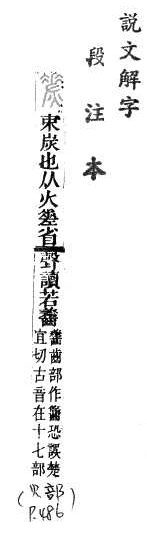 説文解字
段注本
束炭也从火差省聲讀若齹
齒部作 恐誤楚
宜切古音在十七部
(火部)
P.486